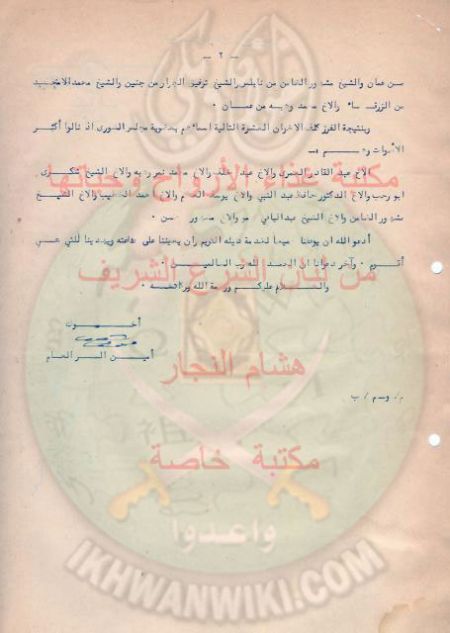 — ٢ —
من عمان والشيخ مشهور الضامن من نابلس والشيخ توفيق الجرار من جنين والشيخ محمد
من الزرقاء والاخ محمد من عمان ٠
وبنتيجة الفرز كلف الاخوان العشرة التالية اسماءهم بعضوية مجلس الشورى اذ نالوا أكثر
الأصوات وهم
الاخ عبد القادر العمري والاخ عبد خلفه والاخ محمد والاخ الشيخ شكري
ابو رجب والاخ الدكتور حافظ عبد النبي والاخ يوسف العظم والاخ احمد الخطيب والاخ الشيخ
مشهور الضامن والاخ الشيخ عبد الباقي والاخ
أدعو الله ان يوفقنا جميعا لخدمة دينه القويم وأن يعيننا على طاعته ويهدينا للتي هي
أقوم ٠ وآخر دعوانا ان الحمد لله رب العالمين ٠
والسلام عليكم ورحمة الله وبركاته ٠
أخوكم
أمين السر العام
مكتبة غذاء الأرواح وحياتها
من لبنان الشرع الشريف
هشام النجار
مكتبة خاصة
واعدوا
IKHWANWIKI.COM